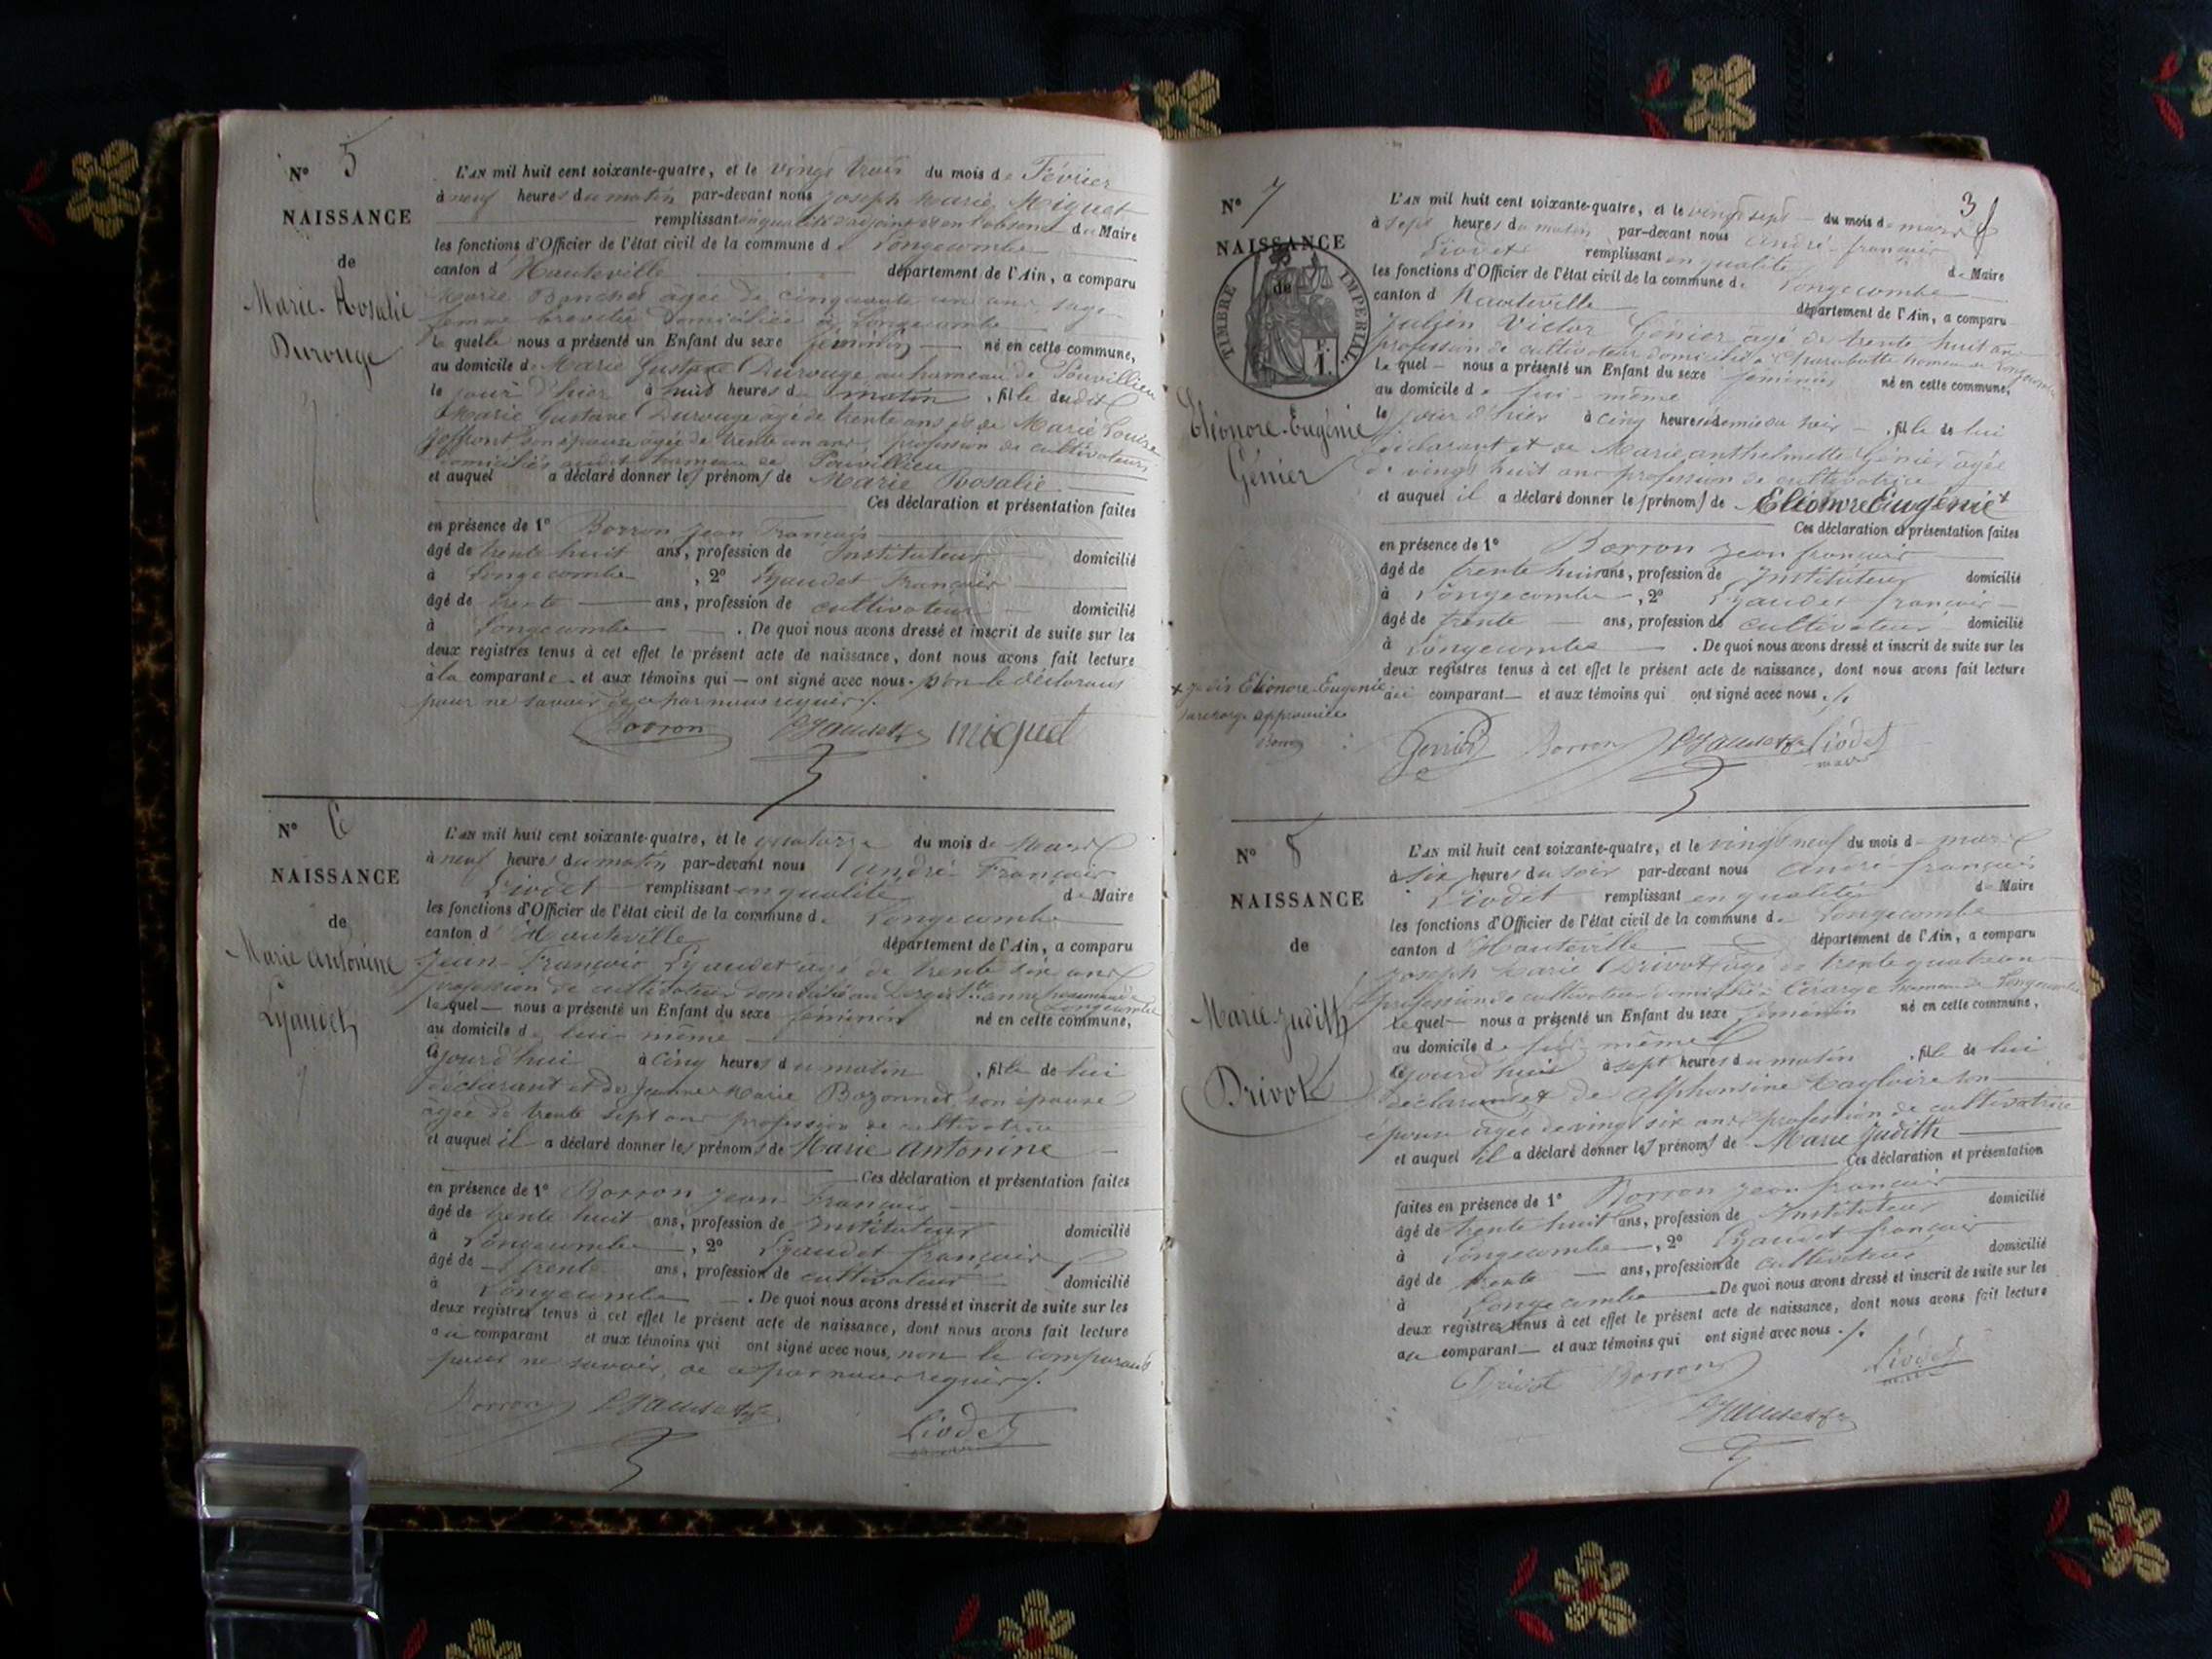 N° 5
NAISSANCE
de
Marie-Rosalie
Durouge
L'AN mil huit cent soixante-quatre, et le vingt trois du mois de Février
à neuf heures du matin par-devant nous Joseph Marie Miquet
remplissant en qualité d'adjoint en l'absence du Maire
les fonctions d'Officier de l'état civil de la commune de Longecombe
canton d'Hauteville département de l'Ain, a comparu
Marie âgée de cinquante un ans, sage
femme brevetée domiciliée à Longecombe
La quelle nous a présenté un Enfant du sexe féminin né en cette commune,
au domicile de Marie Gustave Durouge au hameau de Pouvillieu
le jour d'hier à huit heures du matin, fille dudit
Marie Gustave Durouge âgé de trente ans et de Marie Louise
Joffront son épouse âgée de trente un ans, profession de cultivateurs
domiciliés audit hameau de Pouvillieu
et auquel a déclaré donner les prénoms de Marie Rosalie
Ces déclaration et présentation faites
en présence de 1° Borron Jean François
âgé de trente huit ans, profession de Instituteur domicilié
à Longecombe, 2° Lyaudet François
âgé de trente ans, profession de cultivateur domicilié
à Longecombe. De quoi nous avons dressé et inscrit de suite sur les
deux registres tenus à cet effet le présent acte de naissance, dont nous avons fait lecture
à la comparante et aux témoins qui ont signé avec nous. non le déclarant
pour ne savoir de ce par nous requis.
Borron Lyaudet Miquet
N° 6
NAISSANCE
de
Marie Antonine
Lyaudet
L'AN mil huit cent soixante-quatre, et le quatorze du mois de Mars
à neuf heures du matin par-devant nous André François
Liodet remplissant en qualité de Maire
les fonctions d'Officier de l'état civil de la commune de Longecombe
canton d'Hauteville département de l'Ain, a comparu
Jean-François Lyaudet âgé de trente six ans
profession de cultivateur domicilié au
Le quel nous a présenté un Enfant du sexe féminin né en cette commune,
au domicile de lui même
ce jourd'hui à cinq heures du matin, fille de lui
déclarant et de Jeanne Marie Bozonnet son épouse
âgée de trente sept ans profession de cultivatrice
et auquel il a déclaré donner les prénoms de Marie Antonine
Ces déclaration et présentation faites
en présence de 1° Borron Jean François
âgé de trente huit ans, profession de Instituteur domicilié
à Longecombe, 2° Lyaudet François
âgé de trente ans, profession de cultivateur domicilié
à Longecombe. De quoi nous avons dressé et inscrit de suite sur les
deux registres tenus à cet effet le présent acte de naissance, dont nous avons fait lecture
au comparant et aux témoins qui ont signé avec nous, non le comparant
pour ne savoir, de ce par nous requis.
Borron Lyaudet Liodet
3
N° 7
NAISSANCE
de
TIMBRE IMPERIAL
F.
1.
Eléonore-Eugénie
Génier
L'AN mil huit cent soixante-quatre, et le vingt sept du mois de mars
à sept heures du matin par-devant nous André-françois
Liodet remplissant en qualité de Maire
les fonctions d'Officier de l'état civil de la commune de Longecombe
canton d Hauteville département de l'Ain, a comparu
Julien Victor Génier âgé de trente huit ans
profession de cultivateur domicilié à Charabotte hameau de Longecombe
Le quel nous a présenté un Enfant du sexe féminin né en cette commune,
au domicile de lui-même
le jour d'hier à cinq heures et demie du soir, fille de lui
déclarant et de Marie anthelmette Génier âgée
de vingt huit ans profession de cultivatrice
et auquel il a déclaré donner le prénom de Eléonore Eugénie +
Ces déclaration et présentation faites
en présence de 1° Borron Jean françois
âgé de trente huit ans, profession de Instituteur domicilié
à Longecombe, 2° Lyaudet françois
âgé de trente ans, profession de cultivateur domicilié
à Longecombe. De quoi nous avons dressé et inscrit de suite sur les
deux registres tenus à cet effet le présent acte de naissance, dont nous avons fait lecture
au comparant et aux témoins qui ont signé avec nous.
+ Je dis Eléonore-Eugénie
surcharge approuvée
Borron
Génier Borron Lyaudet Liodet
maire
N° 8
NAISSANCE
de
Marie-Judith
Drivot
L'AN mil huit cent soixante-quatre, et le vingt neuf du mois de mars
à six heures du soir par-devant nous André françois
Liodet remplissant en qualité de Maire
les fonctions d'Officier de l'état civil de la commune de Longecombe
canton d Hauteville département de l'Ain, a comparu
Joseph Marie Drivot âgé de trente quatre ans
profession de cultivateur domicilié à hameau de Longecombe
Le quel nous a présenté un Enfant du sexe féminin né en cette commune,
au domicile de lui-même
ce jourd'hui à sept heures du matin, fille de lui
déclarant et de Alphonsine Magloire son
épouse âgée de vingt six ans profession de cultivatrice
et auquel il a déclaré donner les prénoms de Marie Judith
Ces déclaration et présentation
faites en présence de 1° Borron Jean françois domicilié
âgé de trente huit ans, profession de Instituteur
à Longecombe, 2° Lyaudet françois
âgé de trente ans, profession de cultivateur domicilié
à Longecombe. De quoi nous avons dressé et inscrit de suite sur les
deux registres tenus à cet effet le présent acte de naissance, dont nous avons fait lecture
au comparant et aux témoins qui ont signé avec nous.
Drivot Borron Liodet
Lyaudet